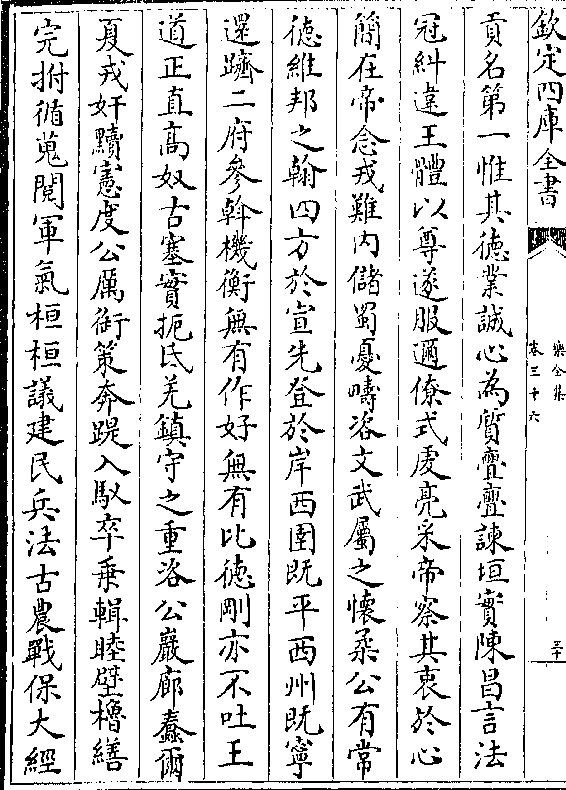 欽定四庫全書
樂全集
卷三十六
貢名第一惟其德業誠心為質亹亹諫垣實陳昌言法
冠糾違王體以尊遂服邇僚式虔亮采帝察其衷於心
簡在帝念戎難內儲蜀憂疇咨文武屬之懷柔公有常
德維邦之翰四方於宣先登於岸西圉既平西州既寧
還躋二府參斡機衡無有作好無有比德剛亦不吐王
道正直高奴古塞實扼氐羌鎮守之重洛公巖廊蠢爾
夏戎奸黷憲度公厲銜策奔踶入馭卒乗輯睦壁櫓繕
完拊循蒐閱軍氣桓桓議建民兵法古農戰保大經